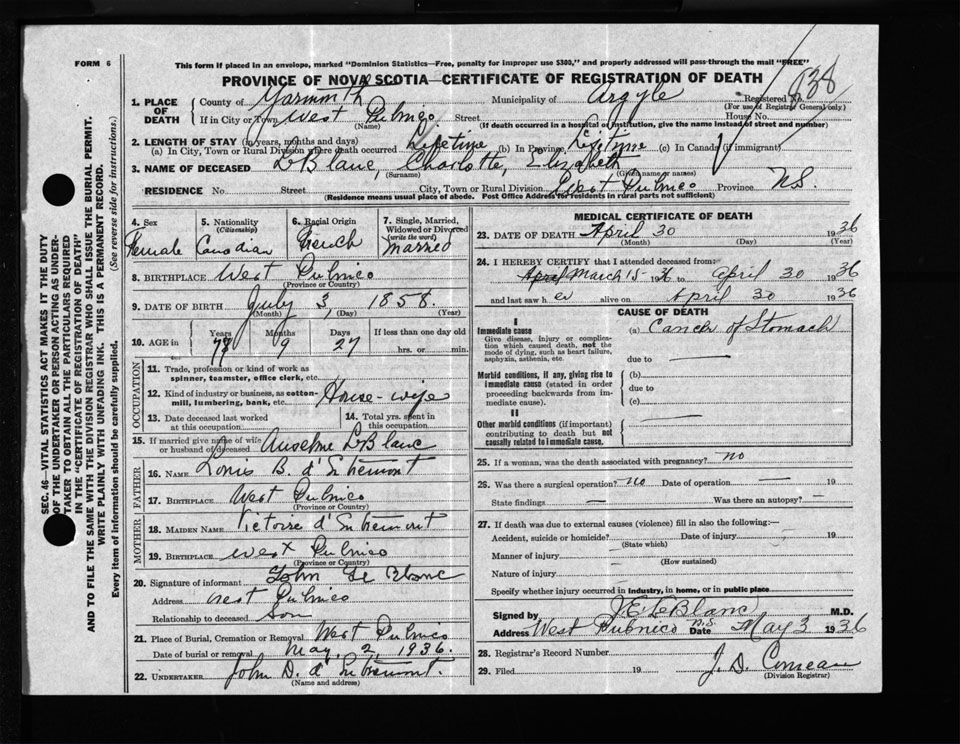 FORM 6
This form if placed in an envelope, marked "Dominion Statistics—Free, penalty for improper use $300," and properly addressed will pass through the mail "FREE"
PROVINCE OF NOVA SCOTIA—CERTIFICATE OF REGISTRATION OF DEATH
838
1. PLACE OF DEATH County of Yarmouth Municipality of Argyle Registered No.
(For use of Registrar General only)
If in City or Town West Pubnico Street House No.
(Name) (If death occurred in a hospital or institution, give the name instead of street and number)
2. LENGTH OF STAY (in years, months and days)
(a) In City, Town or Rural Division where death occurred Lifetime (b) In Province Lifetime (c) In Canada (if immigrant)
3. NAME OF DECEASED LeBlanc, Charlotte, Elizabeth
(Surname) (Given name or names)
RESIDENCE No. Street City, Town or Rural Division West Pubnico Province N.S.
(Residence means usual place of abode. Post Office Address for residents in rural parts not sufficient)
4. Sex 5. Nationality 6. Racial Origin 7. Single, Married, Widowed or Divorced
(Citizenship) (write the word)
Female Canadian French Married
8. BIRTHPLACE West Pubnico
(Province or Country)
9. DATE OF BIRTH July 3, 1858.
(Month) (Day) (Year)
10. AGE in Years Months Days If less than one day old
77 9 27 hrs. or min.
OCCUPATION
11. Trade, profession or kind of work as spinner, teamster, office clerk, etc.
12. Kind of industry or business, as cotton-mill, lumbering, bank, etc. House-wife
13. Date deceased last worked at this occupation 14. Total yrs. spent in this occupation
15. If married give name of wife or husband of deceased Anselme LeBlanc
FATHER
16. NAME Louis B. d'Entremont
17. BIRTHPLACE West Pubnico
(Province or Country)
MOTHER
18. MAIDEN NAME Victoire d'Entremont
19. BIRTHPLACE West Pubnico
(Province or Country)
20. Signature of informant John Le Blanc
Address West Pubnico
Relationship to deceased Son
21. Place of Burial, Cremation or Removal West Pubnico
Date of burial or removal May, 2, 1936.
22. UNDERTAKER John D. d'Entremont.
(Name and address)
MEDICAL CERTIFICATE OF DEATH
23. DATE OF DEATH April 30 1936
(Month) (Day) (Year)
24. I HEREBY CERTIFY that I attended deceased from:
April March 15 1936 to April 30 1936
and last saw her alive on April 30 1936
CAUSE OF DEATH
I
Immediate cause (a) Cancer of Stomach
Give disease, injury or complication which caused death, not the mode of dying, such as heart failure, asphyxia, asthenia, etc.
due to —
Morbid conditions, if any, giving rise to immediate cause (stated in order proceeding backwards from immediate cause).
(b)
due to —
(c)
II
Other morbid conditions (if important) contributing to death but not causally related to immediate cause. —
25. If a woman, was the death associated with pregnancy? no
26. Was there a surgical operation? no Date of operation — 19
State findings — Was there an autopsy? —
27. If death was due to external causes (violence) fill in also the following:—
Accident, suicide or homicide? Date of injury 19
(State which)
Manner of injury
(How sustained)
Nature of injury
Specify whether injury occurred in industry, in home, or in public place
Signed by J E LeBlanc M.D.
Address West Pubnico N.S. Date May 3 1936
28. Registrar's Record Number
29. Filed 19 J. D. Comeau
(Division Registrar)
SEC. 46—VITAL STATISTICS ACT MAKES IT THE DUTY
OF THE UNDERTAKER OR PERSON ACTING AS UNDERTAKER TO OBTAIN ALL THE PARTICULARS REQUIRED
IN THE "CERTIFICATE OF REGISTRATION OF DEATH"
AND TO FILE THE SAME WITH THE DIVISION REGISTRAR WHO SHALL ISSUE THE BURIAL PERMIT.
WRITE PLAINLY WITH UNFADING INK. THIS IS A PERMANENT RECORD.
Every item of information should be carefully supplied. (See reverse side for instructions.)